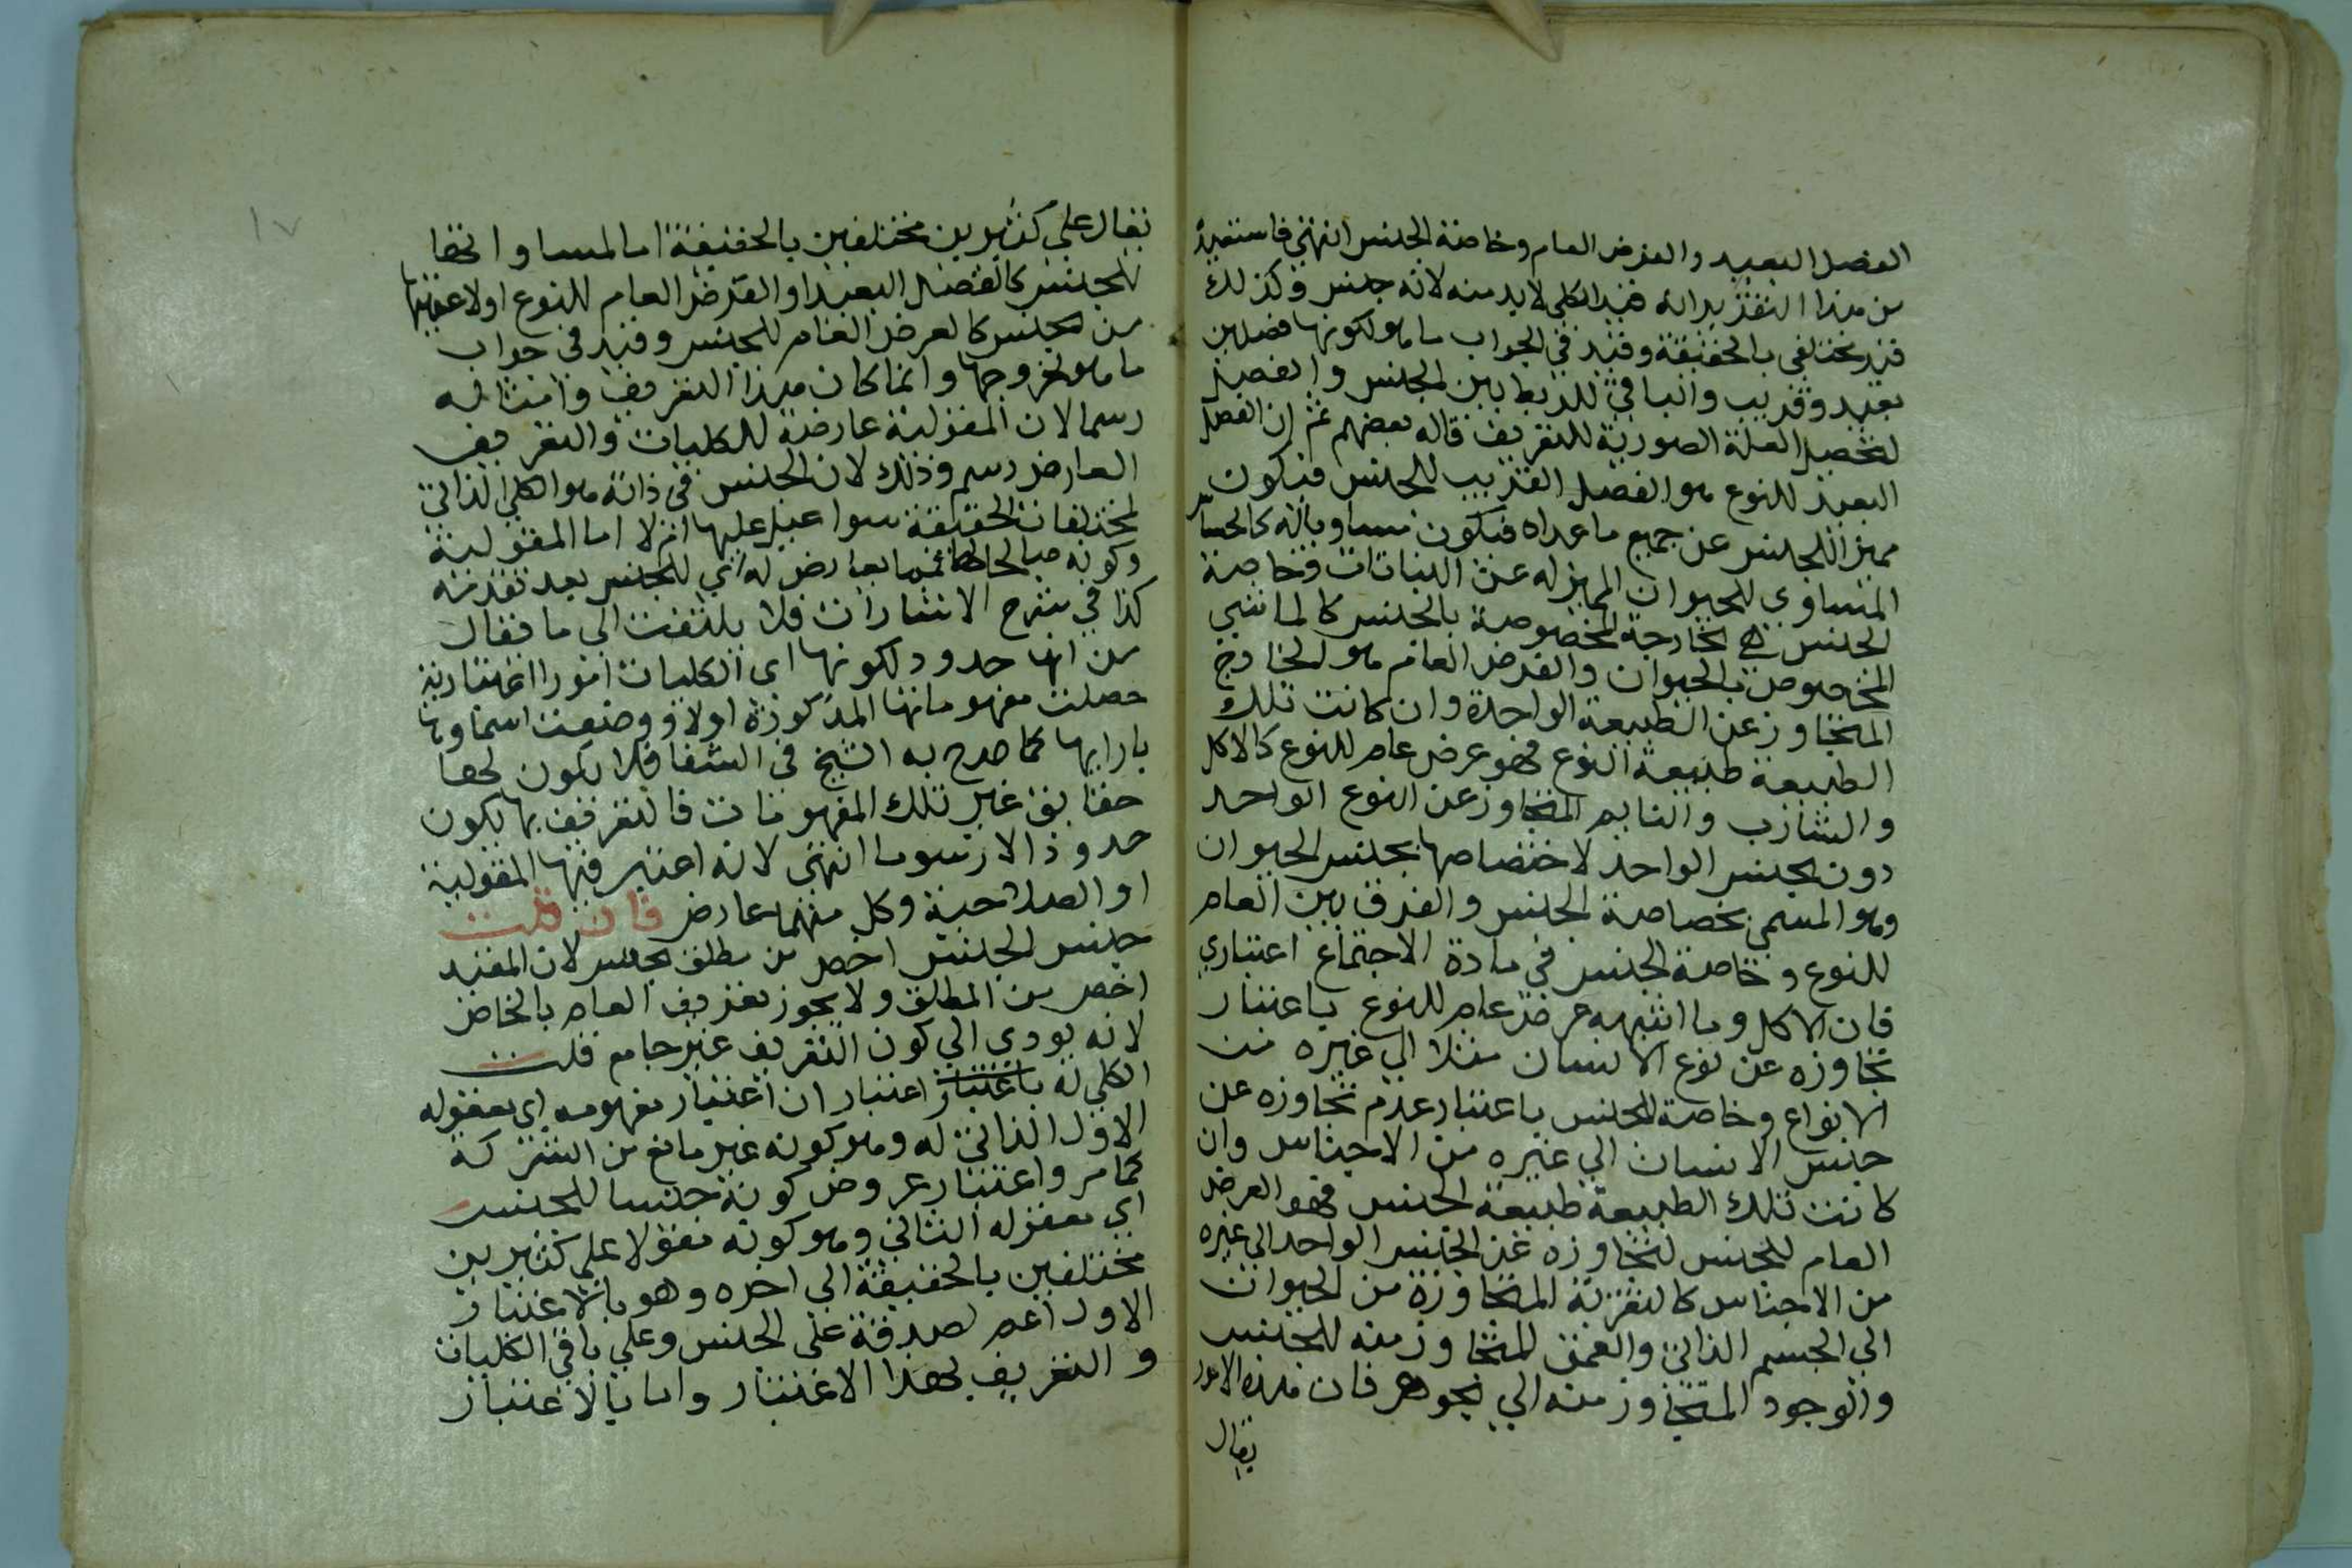 الفصل البعيد والعرض العام وخاصة الجنس انتهى فاستفيد
من هذا التقرير انه قيد الكلي لا بد منه لانه جنس وكذلك
قيد مختلفي بالحقيقة وقيد في الجواب ما هو لكونها فصلين
بعيد وقريب والباقي للربط بين الجنس والفصل
لتحصيل العلة الصورية للتعريف قاله بعضهم ثم ان الفصل
البعيد للنوع هو الفصل القريب للجنس فيكون
مميزا للجنس عن جميع ما عداه فيكون مساويا له كالحساس
المساوي للحيوان المميز له عن النباتات وخاصة
الجنس هي الخارجة المخصوصة بالجنس كالماشي
المخصوص بالحيوان والعرض العام هو الخارج
المتجاوز عن الطبيعة الواحدة وان كانت تلك
الطبيعة طبيعة النوع فهو عرض عام للنوع كالاكل
والشارب والنايم المتجاوز عن النوع الواحد
دون الجنس الواحد لاختصاصها بجنس الحيوان
وهو المسمى بخصاصة الجنس والفرق بين العام
للنوع وخاصة الجنس في مادة الاجتماع اعتباري
فان الاكل وما اشبهه عرض عام للنوع باعتبار
تجاوزه عن نوع الانسان مثلا الي غيره من
الانواع وخاصة للجنس باعتبار عدم تجاوزه عن
جنس الانسان الي غيره من الاجناس وان
كانت تلك الطبيعة طبيعة الجنس فهو العرض
العام للجنس لتجاوزه عن الجنس الواحد الي غيره
من الاجناس كا المتجاوزة من الحيوان
الي الجسم الذاتي والعمق المتجاوز منه للجنس
والوجود المتجاوز منه الي الجوهر فان هذه الامور
يقال
يقال علي كثيرين مختلفين بالحقيقة اما لمساواتها
للجنس كالفصل البعيد او العرض العام للنوع او لاعميتها
من الجنس كالعرض العام للجنس وقيد في جواب
ما هو لخروجها وانما كان هذا التعريف وامثاله
رسما لان المقولية عارضة للكليات والتعريف
العارض رسم وذلك لان الجنس في ذاته هو الكلي الذاتي
لمختلفات الحقيقة سوا عليها ام لا اما المقولية
وكونه صالحا لها بعارض له اي للجنس بعد تقدمه
كذا في شرح الاشارات فلا يلتفت الي ما فقال
من انها حدود لكونها اي الكليات امورا اعتبارية
حصلت مفهوماتها المذكورة اولا ووضعت اسماوها
بازايها كما صرح به الشيخ في الشفا فلا يكون لها
حقايق غير تلك المفهومات فالتعريف بها يكون
حدودا لا رسوما انتهى لانه اعتبر فيها المقولية
او الصلاحية وكل منهما عارض فان قلت
جنس الجنس اخص من مطلق الجنس لان المقيد
اخص من المطلق ولا يجوز تعريف العام بالخاص
لانه يودي الي كون التعريف غير جامع قلت
الكلي له باعتبار اعتبار ان اعتبار مفهومه اي معقوله
الاول الذاتي له وهو كونه غير مانع من الشركة
كما مر واعتبار عروض كونه جنسا للجنس
اي معقوله الثاني وهو كونه مقولا علي كثيرين
مختلفين بالحقيقة الي اخره وهو بالاعتبار
الاول اعم لصدقه علي الجنس وعلي باقي الكليات
والتعريف لهذا الاعتبار واما بالاعتبار
١٧